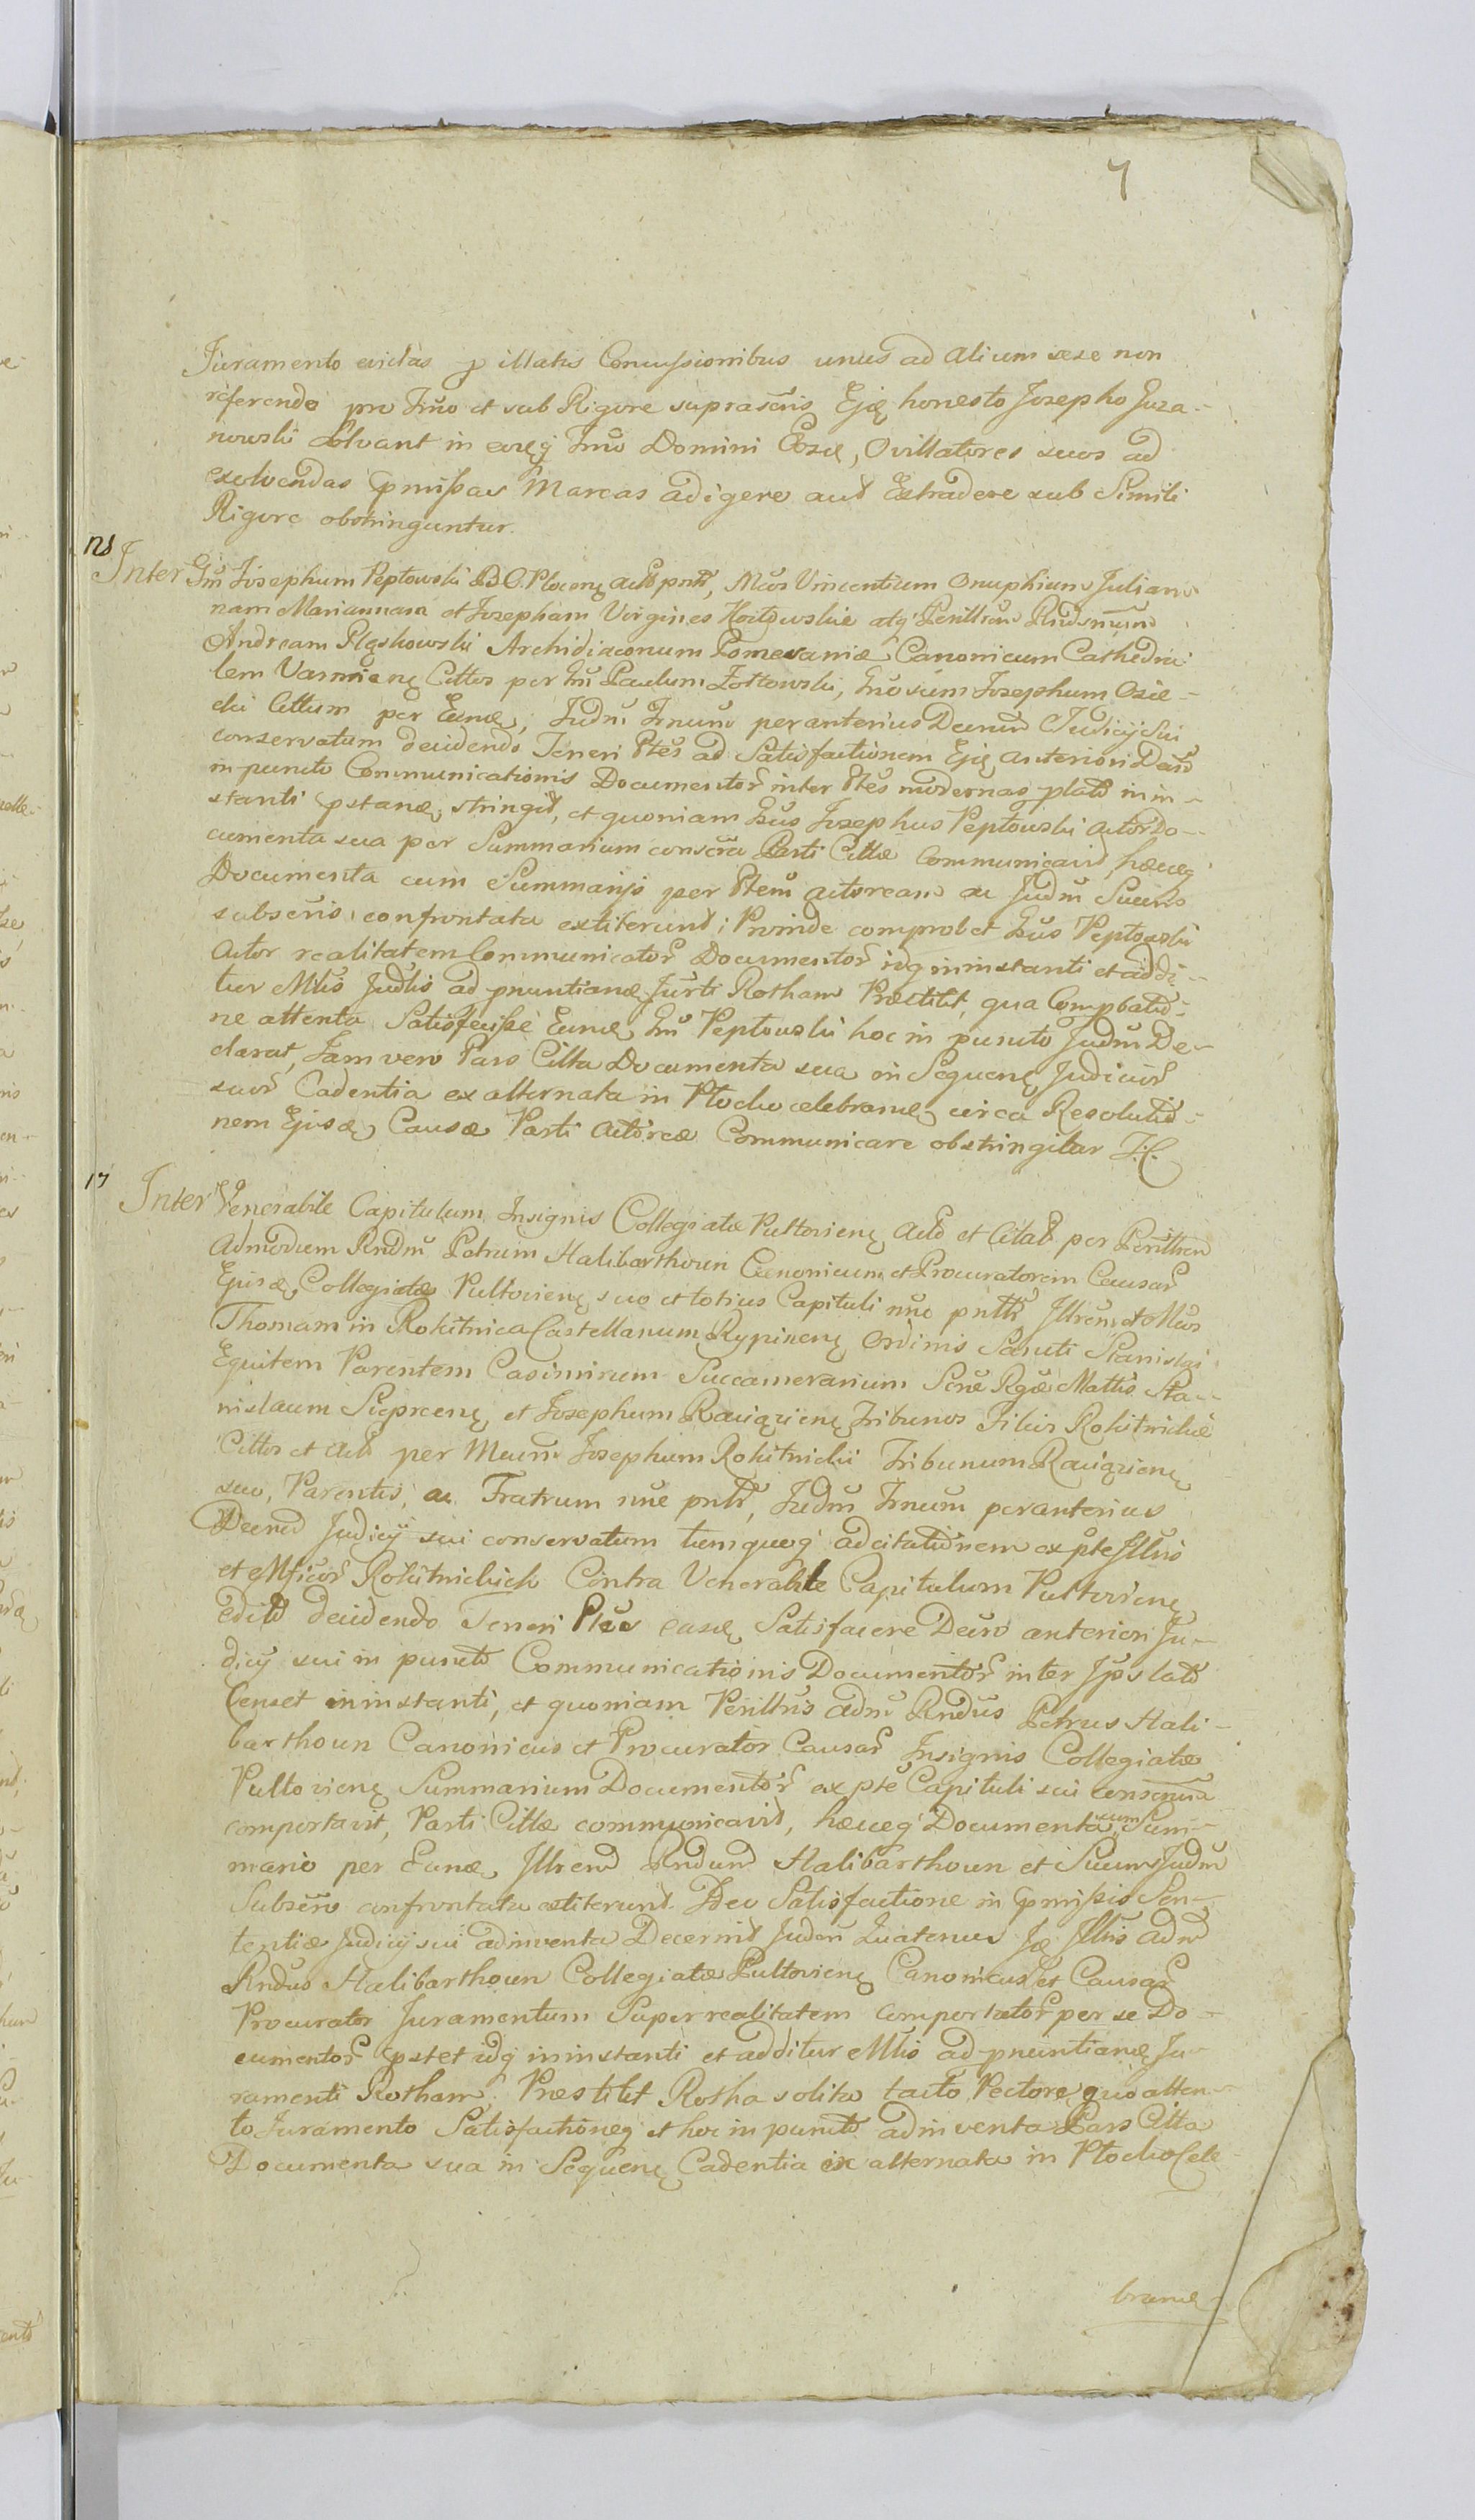 7
Juramento evictas p illatis Concussionibus unus ad alium sese non
referendo pro Tmo et sub Rigore suprascris Ejq honesto Josepho Guza-
nowski Solvant in eoqq Tmo Domini Cosq, Ovillatores suos ad
exolvendas pmissas Marcas adigere aut Extradere sub Simili
Rigore obstringuntur.
Inter Gm Josephum Peptowski B. C. Plocenq actt pntt, Mcos Vincentium Onuphium Julian
nam Mariannam et Josepham Virgines atq Perillrem Rndmum
Andream Archidiaconum Pomeraniæ Canonicum Cathedra-
lem Varmienq Cittos per Gm Paulum Zottowski, Josephum Osie-
cki Cittum per Eunq, Judm Tmum per anterius Decrum Judicij Sui
conservatum decidendo Teneri Ptes ad Satisfactionem Ejq anteriori Decto
in puncto Communicationis Documentor inter Ptes modernas plato inin-
stanti pstanq, stringit, et quoniam Gus Josephus Peptowski actor Do-
cumenta sua per Summarium conscra Parti Cittæ Communicavit, hæceq
Documenta cum Summarijs per Ptem actoream ac Judm Suum
subscris confrontata extiterunt; Proinde comprobet Gus Peptowski
Actor realitatem Communicator Documentor idq ininstanti et addi-
tur Mtis Judlis ad pnuntianq Jurti Rotham Præstitit, qua Compbatio-
ne attenta Satisfecisse Eunq Gm Peptowski hoc in puncto Judm De-
clarat, Jam vero Pars Citta Documenta sua in Sequenq Judicior
suor Cadentia ex alternata in Plocko celebranq circa Resolutio-
nem Ejusq Causæ Parti actoreæ Communicare obstringitur
17 Inter Venerabile Capitulum Insignis Collegiatæ Pultovienq actt et Citatt per Perillrem
Admodum Rndm Petrum Halibarthoun Canonicum et Procuratorem Causar
Ejusq Collegiatæ Pultovienq suo et totius Capituli nne pntt Illrem et Mcos
Thomam in Rokitnica Castellanum Rypinenq Ordinis Sancti Stanislai
Equitem Parentem Casimirum Succamerarium Scræ Rgæ Mattis Sta-
nislaum Sieprcenq et Josephum Raciązienq Tribunos Filios Rokitnickie
Cittos et actt per Mcum Josephum Rokitnicki Tribunum Raciązienq
suo, Parentis, ac Fratrum nne pntt, Judm Tmum per anterius
Decrud Judicij sui conservatum tumqueq ad citationem ex pte Illris
et Mficor Rokitnickich Contra Venerabile Capitulum Pultovienq
edito decidendo Teneri Ptes easq Satisfacere Decro anteriori Ju-
dicij sui in puncto Communicationis Documentor inter Jps lato
Censet ininstanti, et quoniam Perillris adm Rndus Petrus Hali-
barthoun Canonicus et Procurator Causar Insignis Collegiatæ
Pultovienq Summarium Documentor ex pte Capituli sui conscrm
comportavit, Parti Cittæ communicavit, hæceq Documenta cum Sum-
mario per Eunq Illrem Rndum Halibarthoun et Suum Judm
Subscris confrontata extiterunt. Deo Satisfactione in pmissis Sen-
tentiæ Judicij sui adinventa Decernit Judm Quatenus Jq Illris adm
Rndus Halibarthoun Collegiatæ Pultovienq Canonicus et Causar
Procurator Juramentum Super realitatem comportator per se Do-
cumentor pstet idq ininstanti et additur Mtis ad pnuntianq Ju-
ramenti Rotham. Præstitit Rotha solita tacto Pectore, quo atten-
to Juramento Satisfactioneq et hoc in puncto adinventa Pars Citta
Documenta sua in Sequenq Cadentia ex alternata in Plocko Cele-
branq